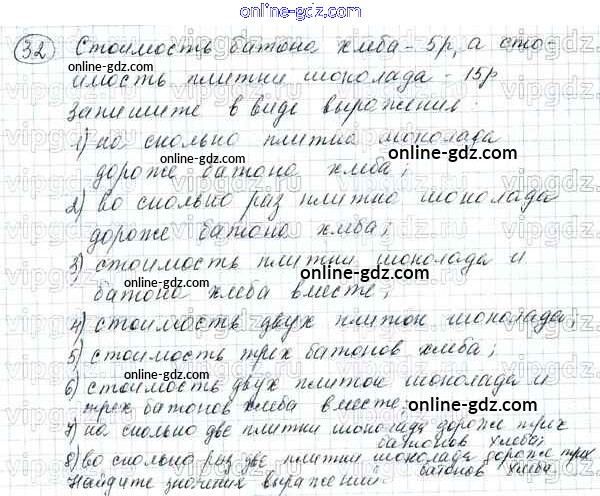 online-gdz.com
32 Стоимость батона хлеба - 5р, а сто-
имость плитки шоколада - 15р
Запишите в виде выражения:
1) на сколько плитка шоколада
дороже батона хлеба;
2) во сколько раз плитка шоколада
дороже батона хлба;
3) стоимость плитки шоколада и
батона хлеба вместе;
4) стоимость двух плиток шоколада;
5) стоимость трех батонов хлеба;
6) стоимость двух плиток шоколада и
трех батонов хлеба вместе;
7) на сколько две плитки шоколада дороже трех
батонов хлеба;
8) во сколько раз две плитки шоколада дороже трех
батонов хлеба
Найдите значения выражений.
online-gdz.com
online-gdz.com
online-gdz.com
online-gdz.com
online-gdz.com
online-gdz.com
online-gdz.com
online-gdz.com